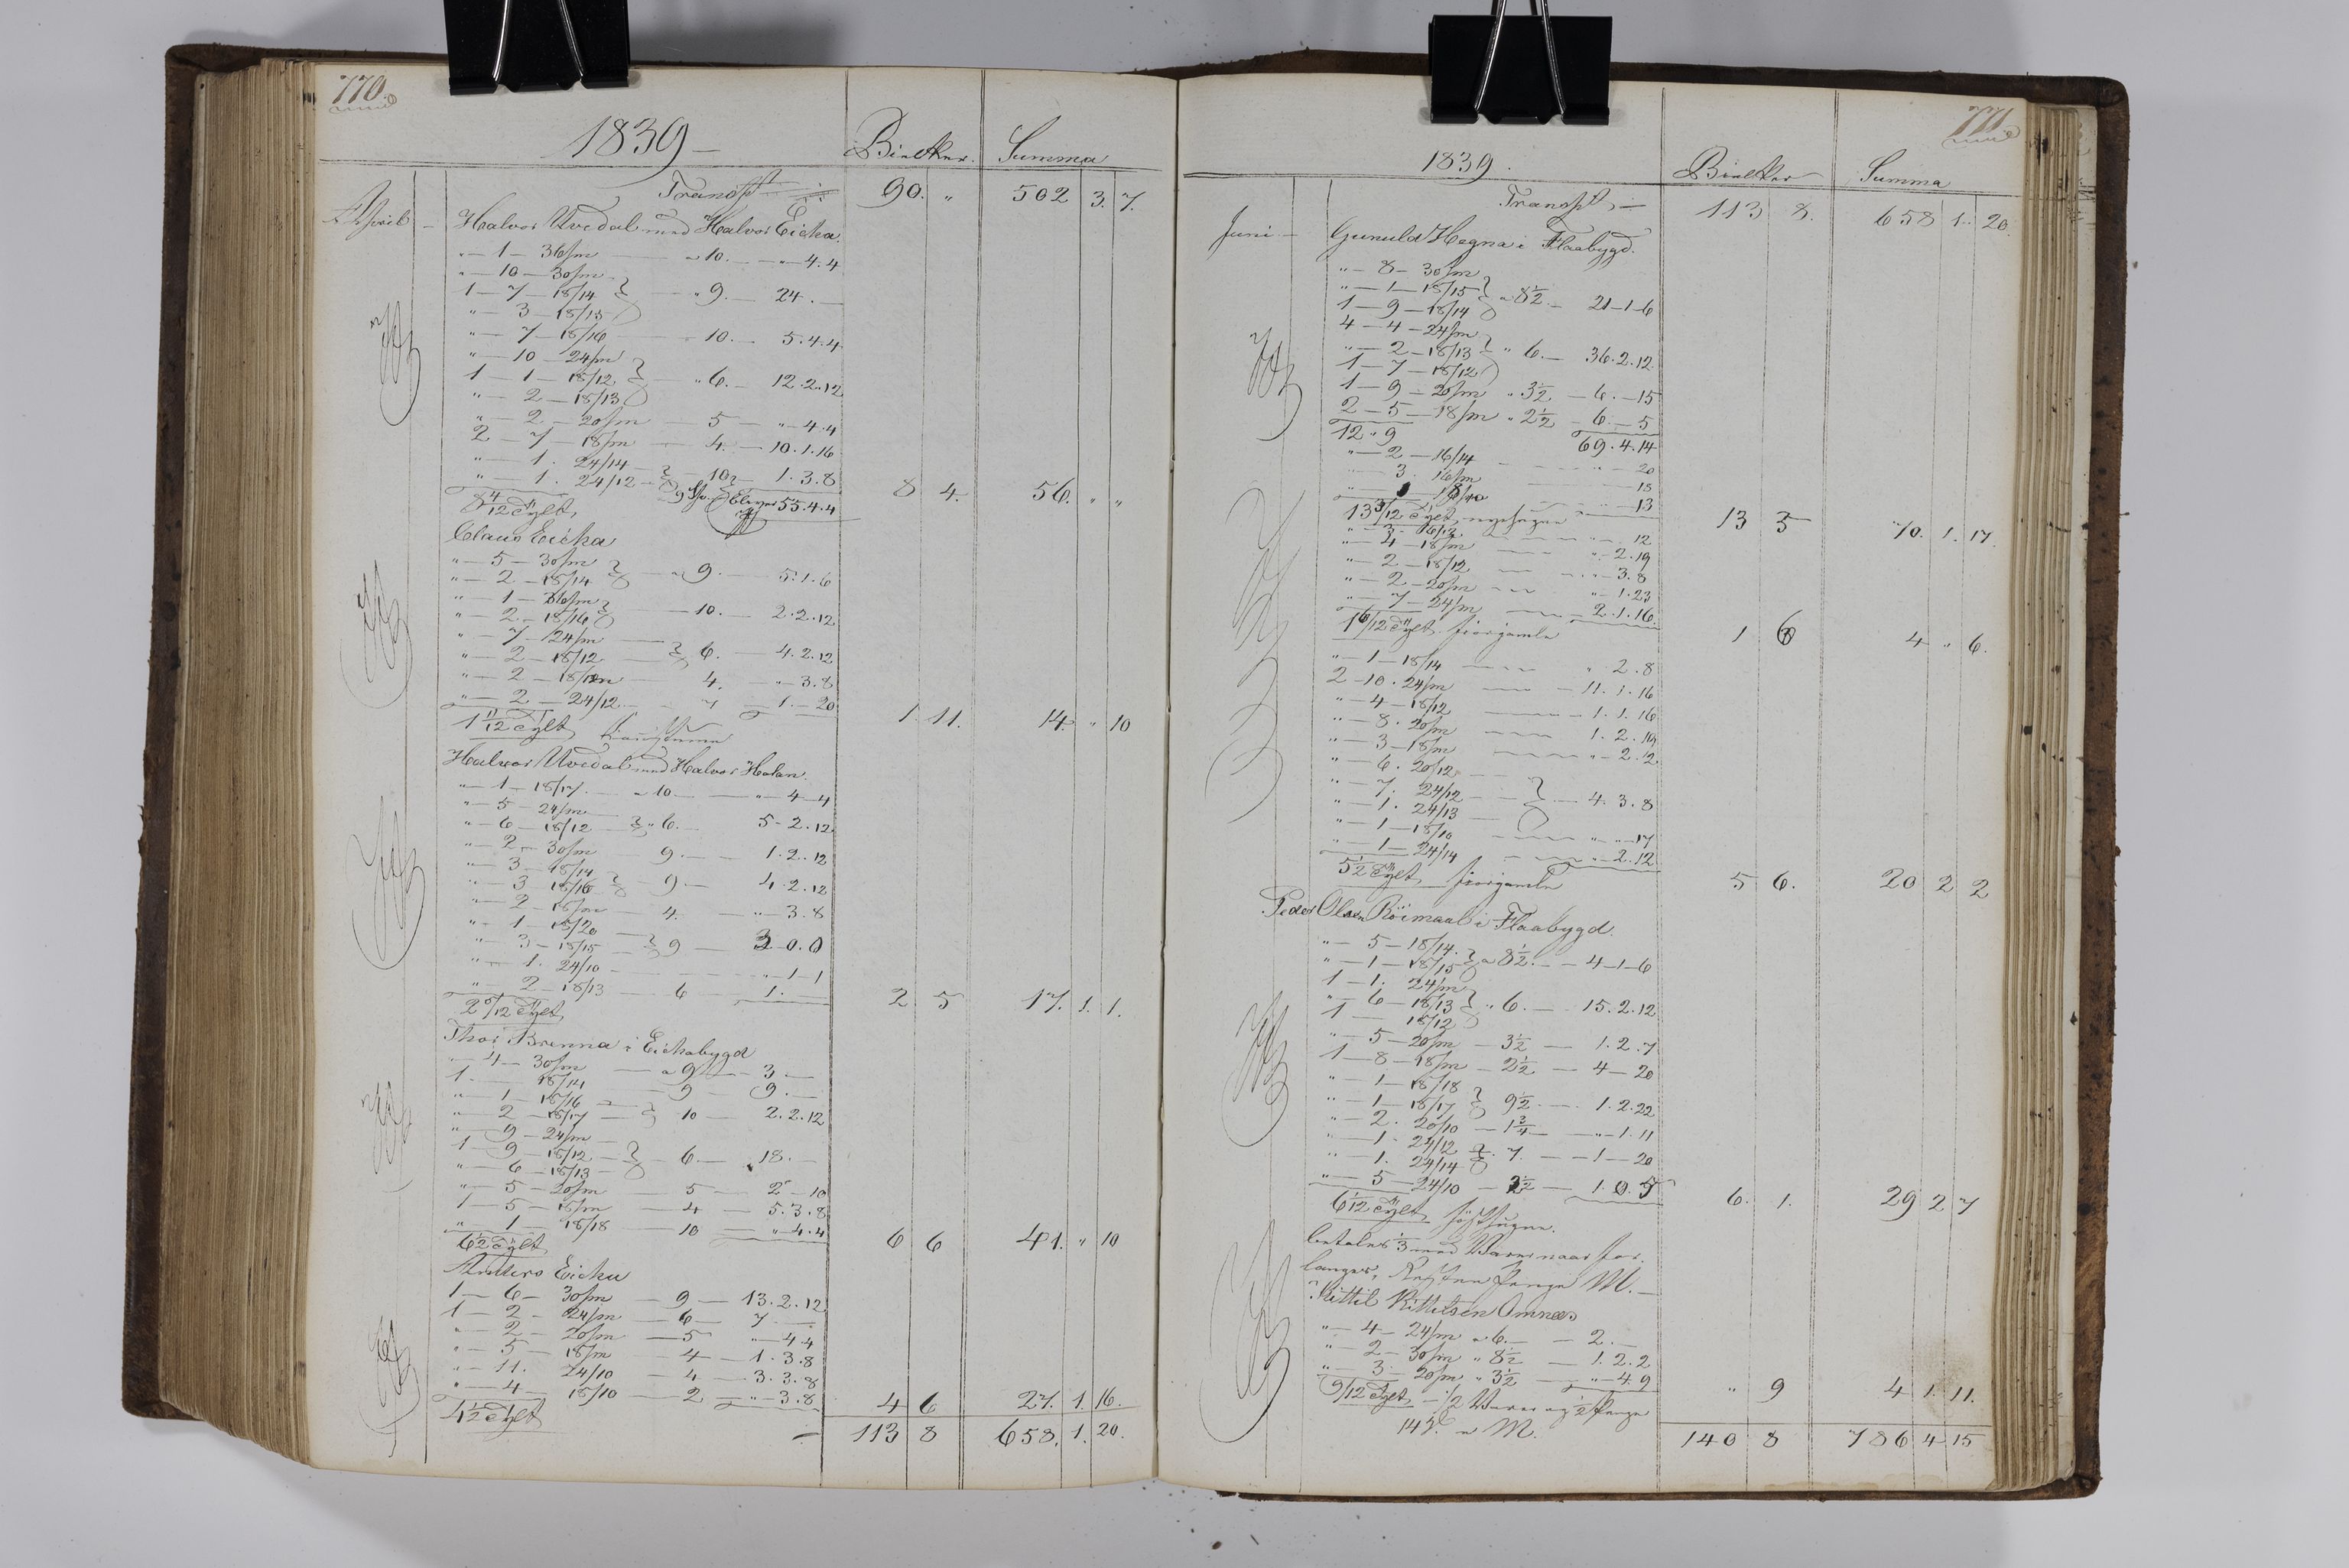 770.
1839 —
Bielker. Summa
Transpt 90. „ 502 3. 7.
April — Halvor Uvedal med Halvor Eicha.
„ — 1 — 36/m — „ 10. — „ — 4.4
„ — 10 — 30/m
1 — 7 — 18/14 } — „ 9. — 24. —
„ — 3 — 18/15
„ — 7 — 18/16 — „ 10. — 5.4.4
„ — 10 — 24/m
1 — 1 — 18/12 } „ 6. — 12.2.12
„ — 2 — 18/13
„ — 2 — 20/m — 5 — „ — 4.4
2 — 7 — 18/m — 4. — 10.1.16
„ — 1. 24/14
„ — 1. 24/12 } — 10 — 1.3.8
8 4/12 Tylt, 55.4.4 8 4. 56. „ „
Claus Eicha
„ — 5 — 30/m
„ — 2 — 18/14 } — „ 9. — 5.1.6
„ — 1 — 36/m
„ — 2 — 18/16 } — 10. — 2.2.12
„ — 7 — 24/m
„ — 2 — 18/12 } 6. — 4.2.12
„ — 2 — 18/m — 4. „ — 3.8
„ — 2 — 24/12 — 7 — 1. — 20
1 11/12 Tylt 1 11. 14. „ 10
Halvor Uvedal med Halvor Holan.
„ — 1 — 18/17 — „ 10 — „ 4 — 4
„ — 5 — 24/m
„ — 6 — 18/12 } „ 6. — 5 — 2.12
„ — 2 — 30/m — 9. — 1.2.12
„ — 3 — 18/14
„ — 3 18/16 } — 9 — 4.2.12
„ — 2 — 18/m — 4. — „ — 3.8
„ — 1 — 18/20
„ — 3 — 18/15 } 9 — 3 — 0.0
„ — 1. 24/10 — „ — 1 — 1
„ — 2 — 18/13 — 6 — 1. —
2 5/12 Tylt 2 5 17. 1. 1.
Thor Brenna i Eichabygd
„ — 4 — 30/m — a 9 — 3. —
1. — 18/14 — 9 — 9. —
„ — 1 — 18/16
„ — 2 — 18/17 } 10 — 2.2.12
„ — 9 — 24/m
1 — 9 — 18/12 } — 6. — 18. —
„ — 6 — 18/13
„ — 5 — 20/m — 5 — 2 — 10
1 — 5 — 18/m — 4 — 5.3.8
„ — 1 — 18/18 — 10 — „ 4.4
6 1/2 Tylt 6 6 41. „ 10
Anders Eicha
1 — 6 — 30/m — 9 — 13.2.12
1 — 2 — 24/m — 6 — 7 —
„ — 2 — 20/m — 5 „ — 4 4
„ — 5 — 18/m — 4 — 1.3.8
„ — 11. 24/10 — 4 — 3.3.8
„ — 4 — 18/10 — 2 — „ — 3.8
4 1/2 Tylt 4 6 27. 1. 16.
113 8 658. 1. 20.
771
1839.
Bielker Summa
Transpt, — 113 8. 658 1. 20.
Juni — Gunuld Hegna i Flaabygd.
„ — 8 — 30/m
„ — 1 — 18/15 } „ 8 1/2 — 21 — 1 — 6
1 — 9 — 18/14
4 — 4 — 24/m
„ — 2 — 18/13 } „ 6. — 36.2.12
1 — 7 — 18/12
1 — 9 — 20/m „ 3 1/2 — 6. — 15
2 — 5 — 18/m „ 2 1/2 — 6 — 5
12 „ 9 69.4.14
„ — 2 — 16/14 — „ — 20
„ 3. 16/m — 18
„ 1 18/10 — 13
13 3/12 Tylt 13 3 70. 1. 17.
„ — 3 — 16/12 — „ — 12
„ — 4 — 18/m — „ 2.19
„ — 2 — 18/12 — „ — 3.8
„ — 2 — 20/m — „ 1.23
„ — 7 — 24/m — 2.1.16.
1 6/12 Tylt 1 6 4 „ 6.
„ — 1 — 18/14 — „ 2.8
2 — 10. 24/m — 11.1.16
„ — 4 — 18/12 — 1.1.16
„ — 8. 20/m — 1.2.19
„ — 3 — 18/m — „ — 2.2
„ — 6. 20/12
„ — 7. 24/12 } — 4.3.8
„ — 1. 24/13
„ — 1 — 18/10 — „ — 17
„ — 1 — 24/14 — „ — 2.12
5 1/2 Tylt 5 6. 20 2 2
Peder Olsen Röimaal i Flaabygd.
„ — 5 — 18/14
„ — 1 — 18/15 } a 8 1/2 — 4 — 1 — 6
1 — 1. 24/m
„ — 6 — 18/13 } „ 6. — 15.2.12
1 18/12
„ — 5 — 20/m — 3 1/2 — 1.2.7
1 — 8 — 18/m — 2 1/2 — 4 — 20
„ — 1 — 18/18
„ — 1 — 18/17 } 9 1/2 — 1.2.22
„ — 2. 20/10 — 1 3/4 — „ — 1.11
„ — 1. 24/12
„ — 1. 24/14 } 7. — 1 — 20
„ — 5 — 24/10 — 2 1/2 — 1.0.5
6 1/12 Tylt 6. 1. 29 2 7
betales 1/3 med Varer naar for
langes, Resten Penge M. —
Kittil Kittilsen Omnes
„ — 4 — 24/m „ 6. — 2. —
„ — 2 — 30/m „ 8 1/2 — 1.2.2
„ — 3. 20/m „ 3 1/2 — „ 4.9
9/12 Tylt — 1/2 Varer og 1/2 Penge „ 9 4 1. 11.
M.
140 8 786 4 15